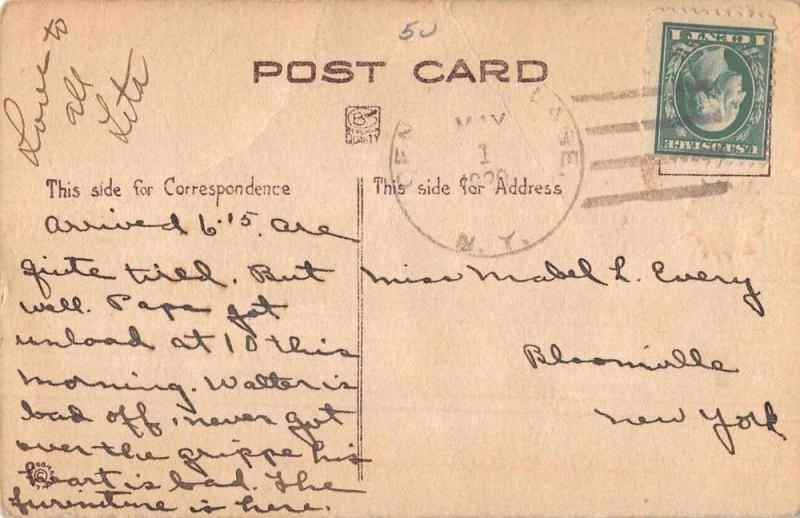 50
Love to
all
Leta
POST CARD
QUALITY
MAY
1
N. Y.
1 CENT 1
U.S. POSTAGE
This side for Correspondence
This side for Address
Arrived 6.15. are
quite tired. But
well. Papa got
unload at 10 this
morning. Walter is
bad off, never got
over the grippe his
heart is bad. The
furniture is here.
Miss Mabel L. Every
Bloomville
New York